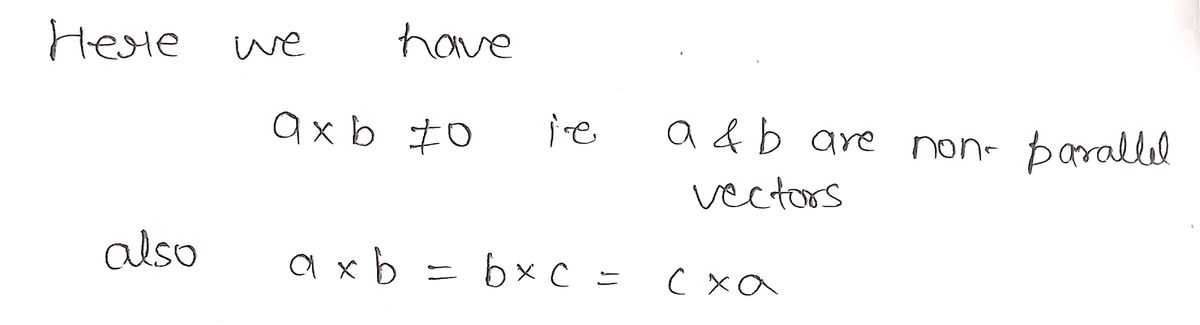 Here we have
a x b ≠ 0 i.e. a & b are non- parallel
vectors
also a x b = b x c = c x a